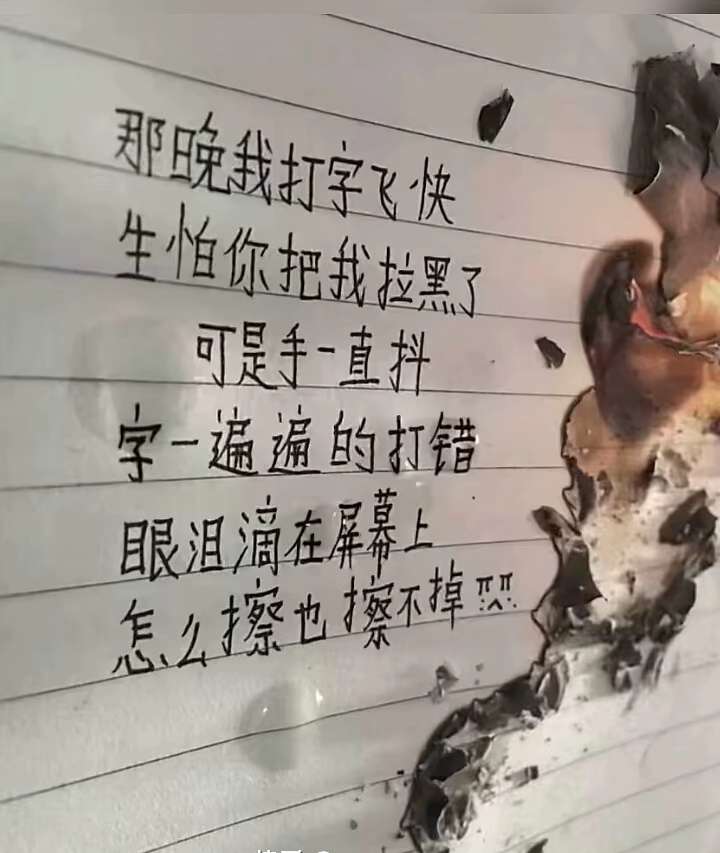 那晚我打字飞快
生怕你把我拉黑了
可是手一直抖
字一遍遍的打错
眼泪滴在屏幕上
怎么擦也擦不掉